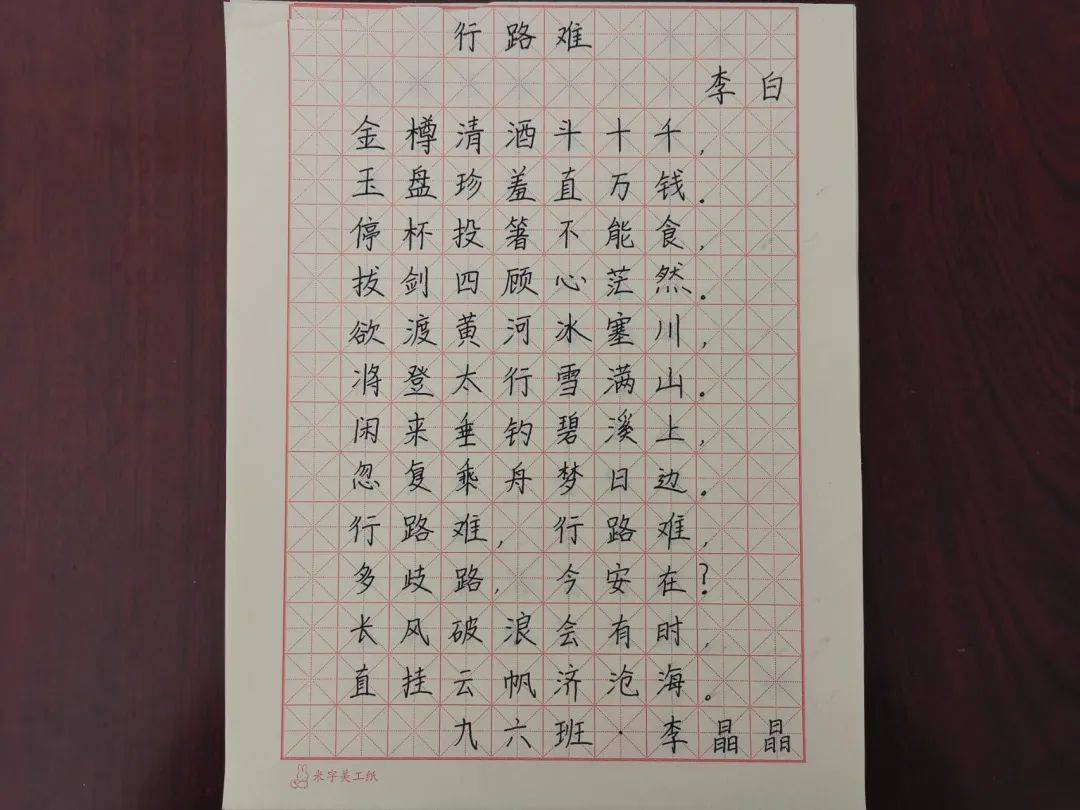 行路难
李白
金樽清酒斗十千，
玉盘珍羞直万钱。
停杯投箸不能食，
拔剑四顾心茫然。
欲渡黄河冰塞川，
将登太行雪满山。
闲来垂钓碧溪上，
忽复乘舟梦日边。
行路难，行路难，
多歧路，今安在？
长风破浪会有时，
直挂云帆济沧海。
九六班·李晶晶
米字美工纸